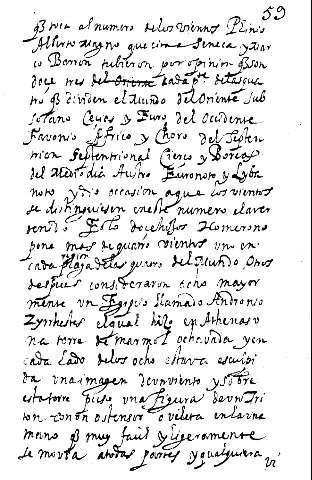 59
qᵉ toca al numero delos vientos Plinio
Alberto Magno que cita a Seneca y Mar
co Barron tubieron por opinion qᵉ son
doce tres del Oriente cada pᵗᵉ delas qua
tro qᵉ dividen el Mundo del Oriente sub
solano Cecias y Euro del Occidente
Favonio Africo y Choro del Septen
trion Septentrional Cierco y Boreas
del Mediodia Austro Euronoto y Lyba
noto y dio occasion a que los vientos
se distinguiesen en este numero el aver
tenido dellos Homero no
pone mas de quatro vientos uno en
cada region delas quatro del Mundo Otros
despues consideraron ocho mayor
mente un Egipcio llamado Andronso
Zyrrhestes el qual hizo en Athenas u
na torre de marmol ochavada y en
cada lado de los ocho estava esculpi
da una imagen de un viento y sobre
esta torre puso una figura de un Tri
ton con un ostensor o veleta en la una
mano qᵉ muy facil y ligeramente
se movia a todas partes y qualquiera
vi